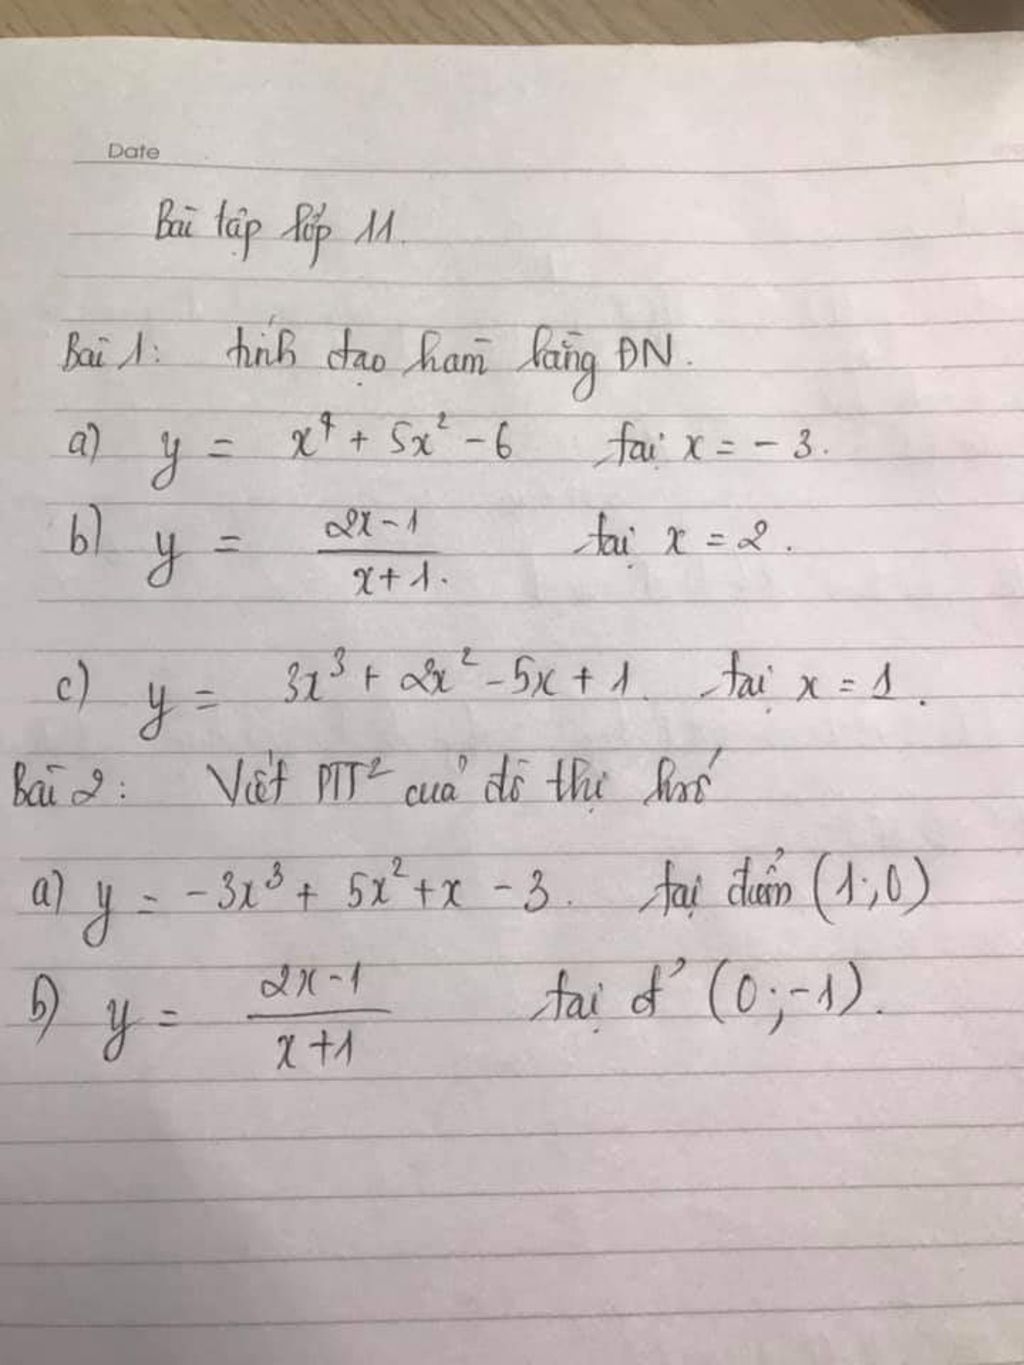 Date
Bài tập lớp 11.
Bài 1: tính đạo hàm bằng ĐN.
a) y = x⁴ + 5x² - 6 tại x = - 3.
b) y = \frac{2x-1}{x+1} tại x = 2.
c) y = 3x³ + 2x² - 5x + 1. tại x = 1.
Bài 2: Viết PTT² của đồ thị hsố
a) y = -3x³ + 5x² + x - 3. tại điểm (1;0)
b) y = \frac{2x-1}{x+1} tại đ' (0;-1).